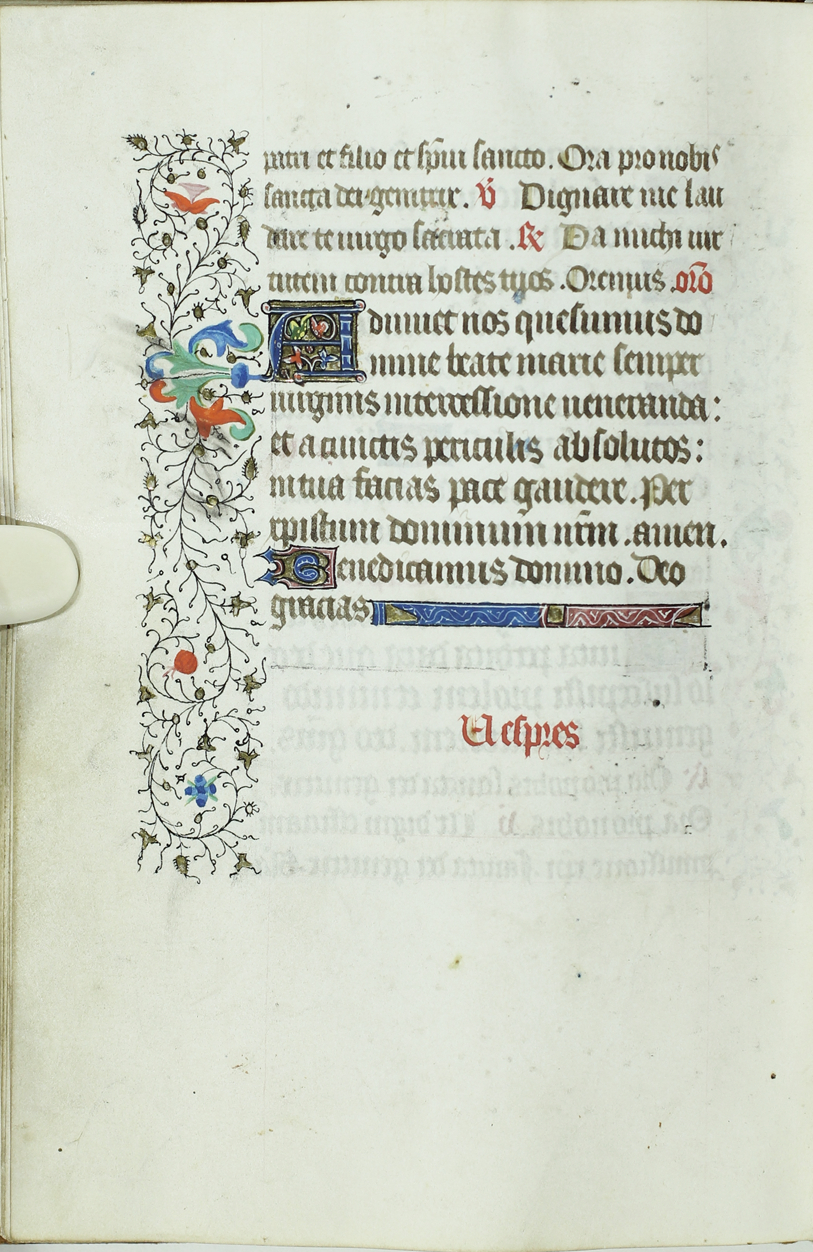 patri et filio et sp̄ui sancto. Ora pro nobis
sancta dei genitrix. v̄ Dignare me lau
dare te uirgo sacrata. R̷ Da michi uir
tutem contra hostes tuos. Oremus. or̄o
Adiuuet nos quesumus do
mine beate marie semper
uirginis intercessione ueneranda:
et a cunctis periculis absolutos:
in tua facias pace gaudere. Per
xpistum dominum n̄rm. amen.
Benedicamus domino. Deo
gracias
Uespres